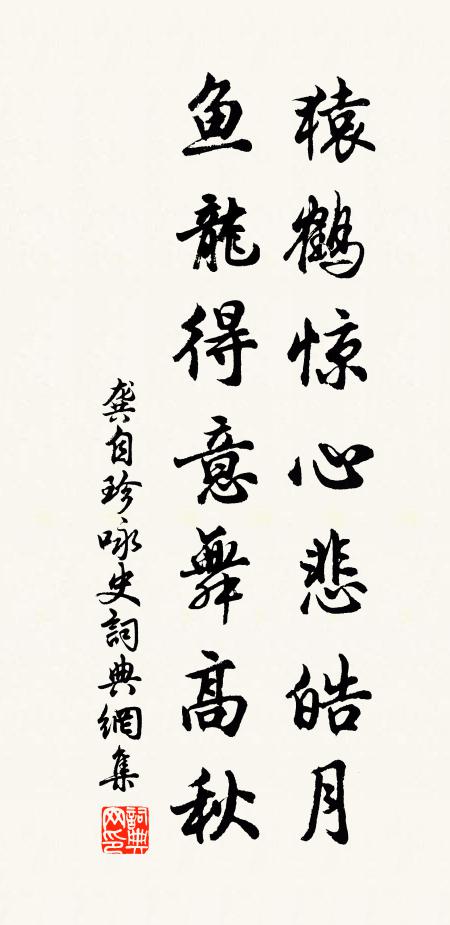 猿鹤惊心悲皓月
鱼龍得意舞高秋
龚自珍咏史詞典網集
詞典網印